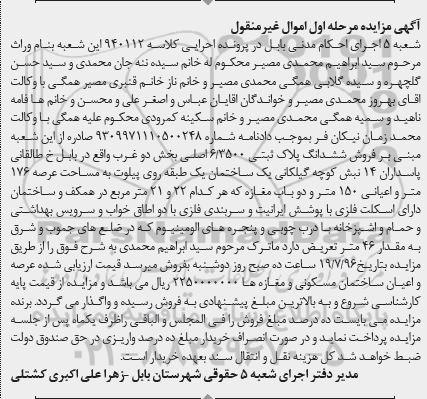 آگهی مزایده مرحله اول اموال غیرمنقول
شعبه ۵ اجرای احکام مدنی بابل در پرونده اجرایی کلاسه ۹۴۰۱۱۲ این شعبه بنام وراث
مرحوم سید ابراهیم محمدی مصیر محکوم له خانم سیده ننه جان محمدی و سید حسن
گلچهره و سیده گلابی همگی محمدی مصیر و خانم ناز خانم قنبری مصیر همگی با وکالت
اقای بهروز محمدی مصیر و خواندگان اقایان عباس و اصغر علی و محسن و خانم ها فامه
ناهید و سمیه همگی محمدی مصیر و خانم سکینه کمرودی محکوم علیه همگی با وکالت
محمد زمان نیکان فر بموجب دادنامه شماره ۹۳۰۹۹۷۱۱۱۰۵۰۰۲۴۸ صادره از این شعبه
مبنی بر فروش ششدانگ پلاک ثبتی ۶/۳۵۰۰ اصلی بخش دو غرب واقع در بابل خ طالقانی
پاسداران ۱۴ نبش کوچه گیلکانی یک ساختمان یک طبقه روی پیلوت به مساحت عرصه ۱۷۶
متر و اعیانی ۱۵۰ متر و دو باب مغازه که هر کدام ۲۲ و ۲۱ متر مربع در همکف و ساختمان
دارای اسکلت فلزی با پوشش ایرانیت و سربندی فلزی با دو اطاق خواب و سرویس بهداشتی
و حمام و اشپزخانه با درب چوبی و پنجره های الومینیوم که در ضلع های جنوب و شرق
به مقدار ۴۶ متر تعریض دارد ماترک مرحوم سید ابراهیم محمدی به شرح فوق را از طریق
مزایده بتاریخ ۱۹/۷/۹۶ ساعت ده صبح روز دوشنبه بفروش میرسد قیمت ارزیابی شده عرصه
و اعیان ساختمان مسکونی و مغازه ها ۲۲۵۰۰۰۰۰۰۰ ریال می باشد و مزایده از قیمت پایه
کارشناسی شروع و به بالاترین مبلغ پیشنهادی به فروش رسیده و واگذار می گردد. برنده
مزایده می بایست ده درصد مبلغ فروش را فی المجلس و الباقی راظرف یکماه پس از جلسه
مزایده پرداخت نماید و در صورت انصراف خریدار مبلغ ده درصد واریزی در حق صندوق دولت
ضبط خواهد شد کل هزینه نقل و انتقال سند بعهده خریدار است.
مدیر دفتر اجرای شعبه ۵ حقوقی شهرستان بابل -زهرا علی اکبری کشتلی